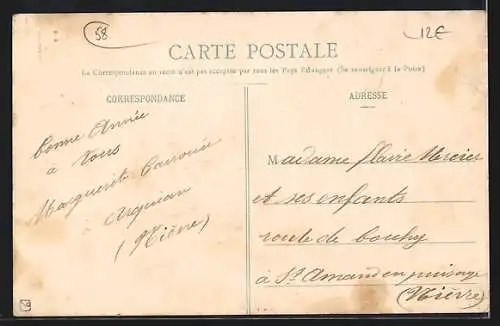 58
12€
CARTE POSTALE
La Correspondance au recto n'est pas acceptée par tous les Pays Étrangers (Se renseigner à la Poste)
CORRESPONDANCE
Bonne Année
à Vous
Marguerite
à
Arquian
(Nièvre)
ADRESSE
Madame Flavie Mercier
et ses enfants
route de bouhy
à St Amand en puisaye
(Nièvre)